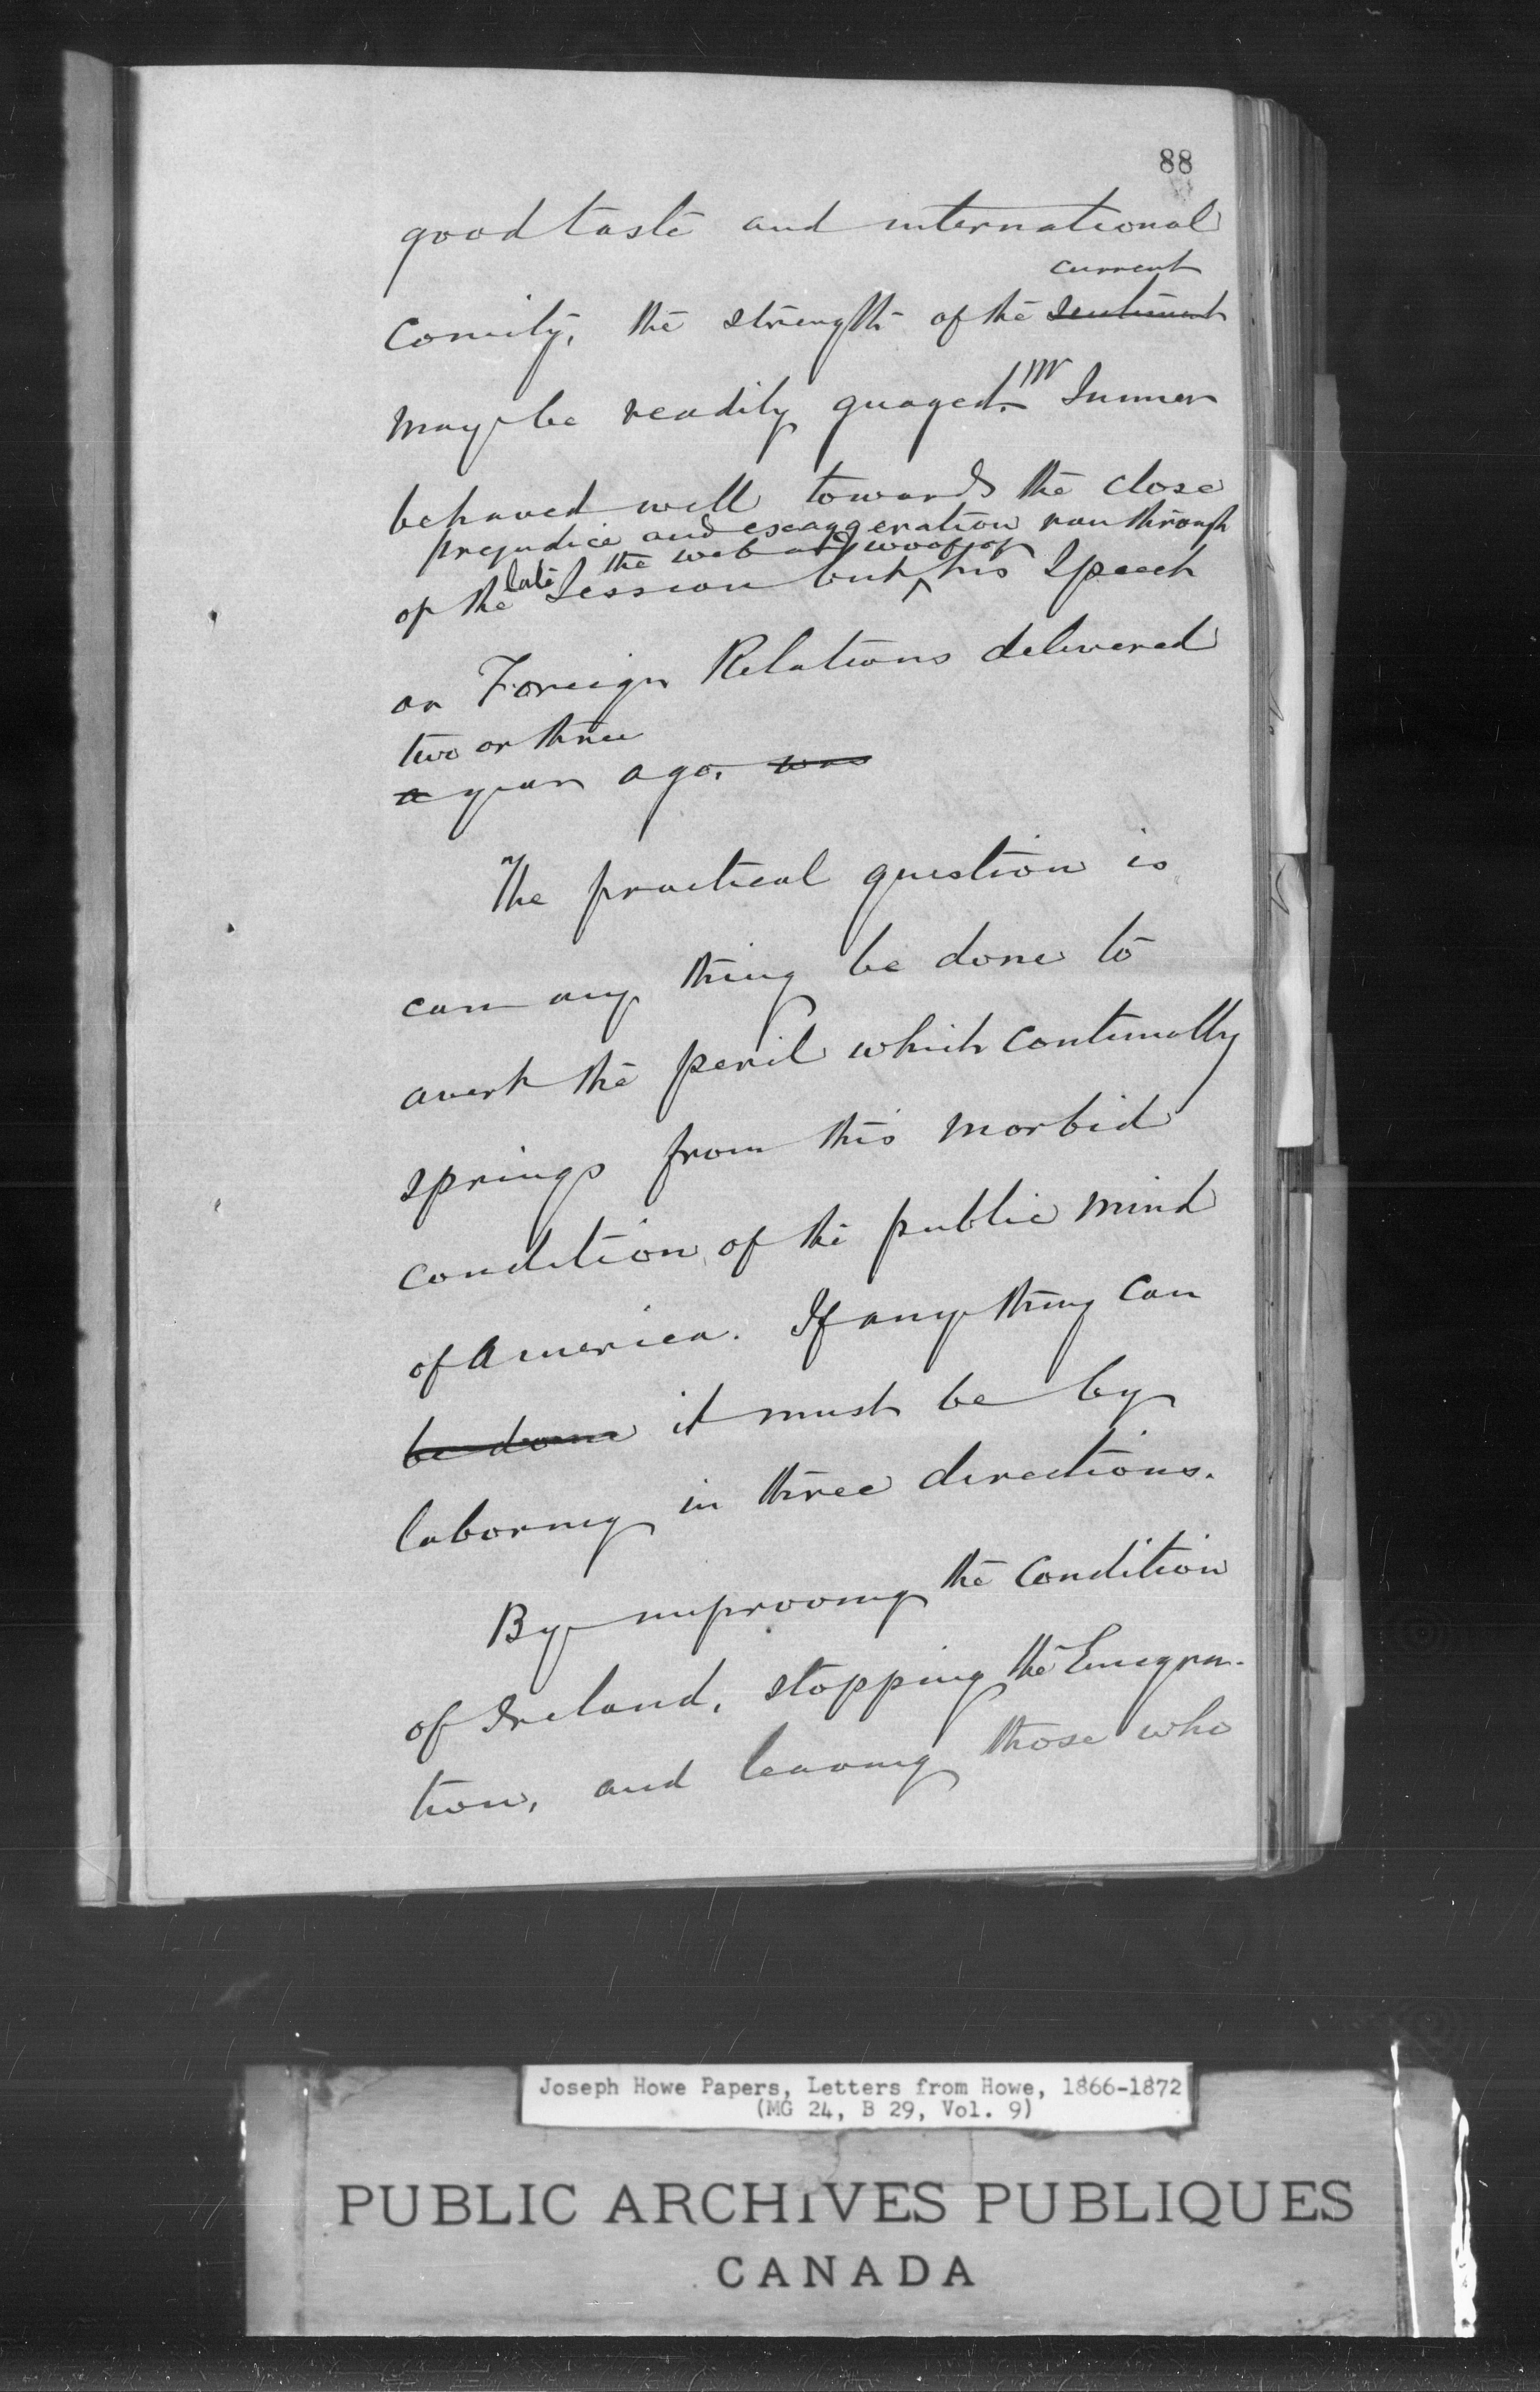 88
good taste and international
current
comity, the strength of the sentiment
may be readily guaged. Mr Sumner
behaved well towards the close
prejudice and exaggeration run through
the web and woof of
of the late Session but ^ his Speech
on Foreign Relations delivered
two or three
a year ago. was
The practical question is
can any thing be done to
avert the peril which continually
springs from this morbid
condition of the public mind
of America. If any thing can
be done it must be by
laboring in three directions.
By improving the condition
of Ireland, stopping the Emigra-
tion, and leaving those who
Joseph Howe Papers, Letters from Howe, 1866-1872
(MG 24, B 29, Vol. 9)
PUBLIC ARCHIVES PUBLIQUES
CANADA